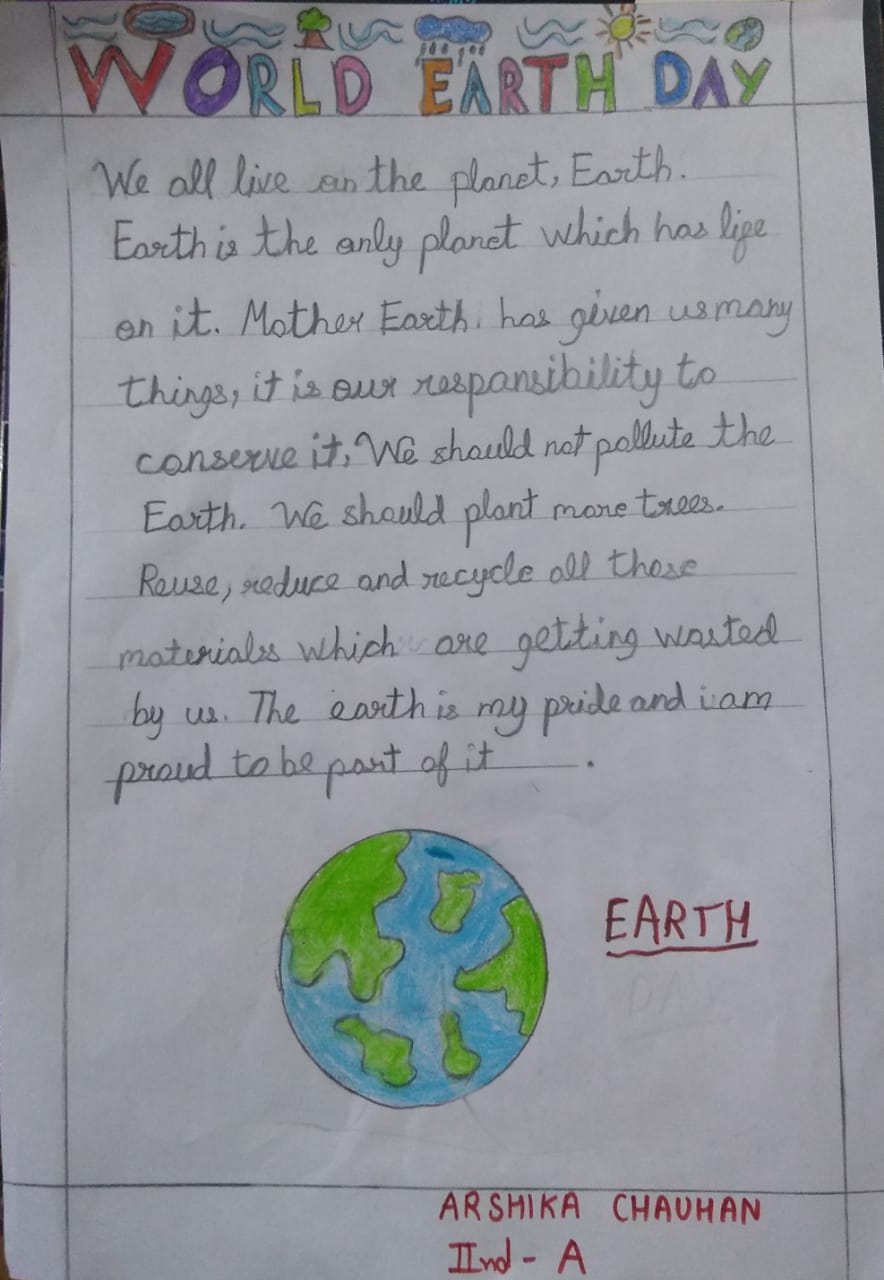 WORLD EARTH DAY
We all live on the planet, Earth.
Earth is the only planet which has life
on it. Mother Earth has given us many
things, it is our responsibility to
conserve it. We should not pollute the
Earth. We should plant more trees.
Reuse, reduce and recycle all those
materials which are getting wasted
by us. The earth is my pride and i am
proud to be part of it .
EARTH
DAY
ARSHIKA CHAUHAN
IInd - A